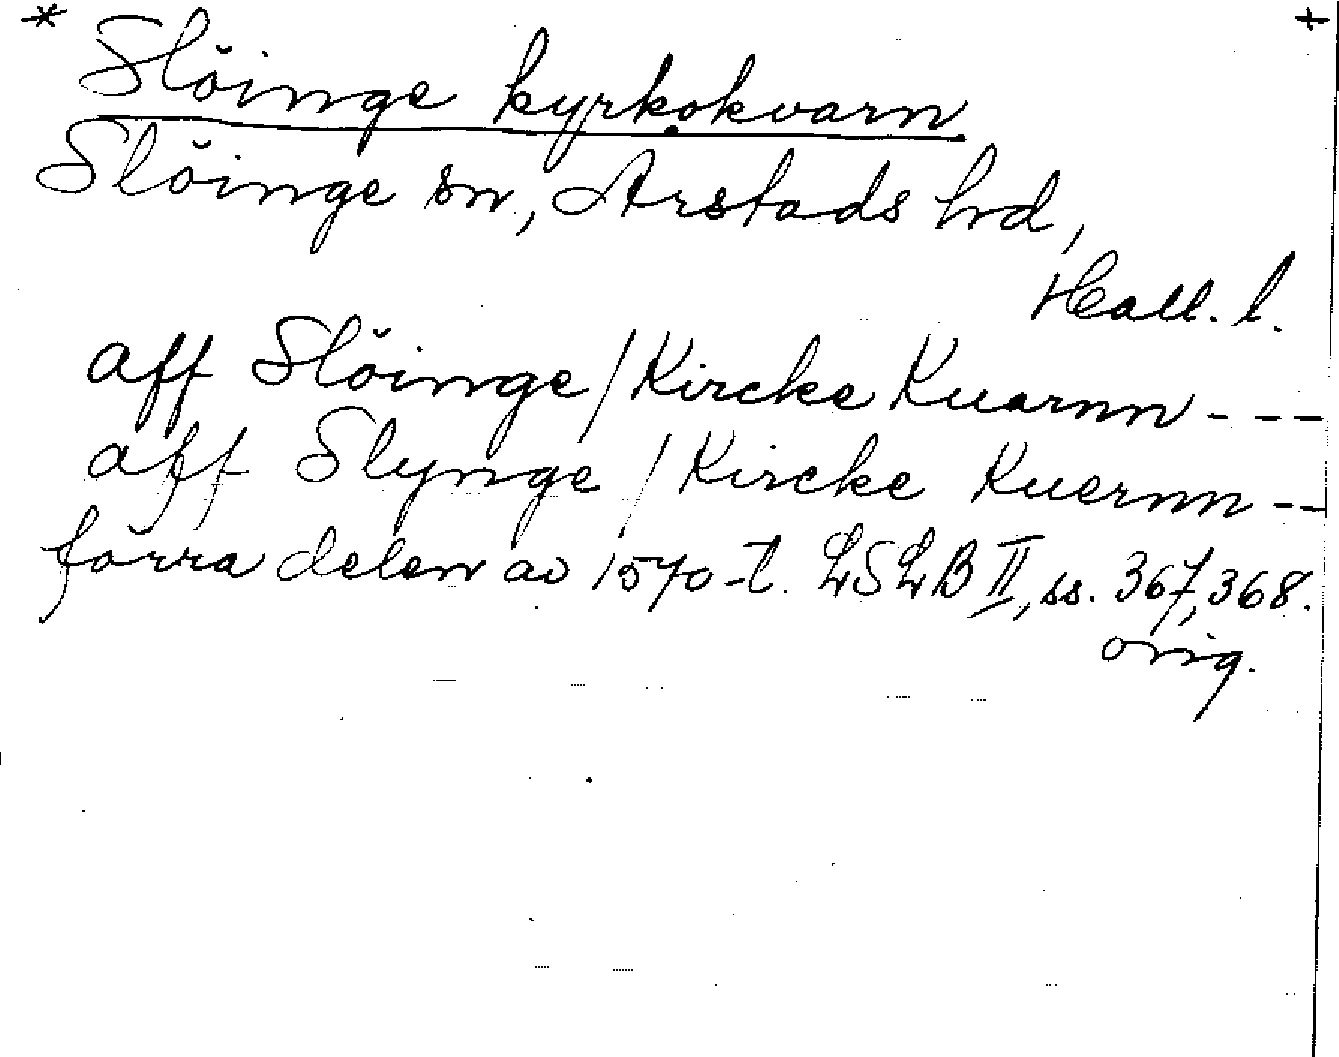 * Slöinge kyrkokvarn +
Slöinge sn, Årstads hd,
Hall. l.
aff Slöinge / Kircke Kuarnn - - -
aff Slynge / Kircke Kuernn - -
förra delen av 1570-t. LSLB II, ss. 367, 368.
orig.